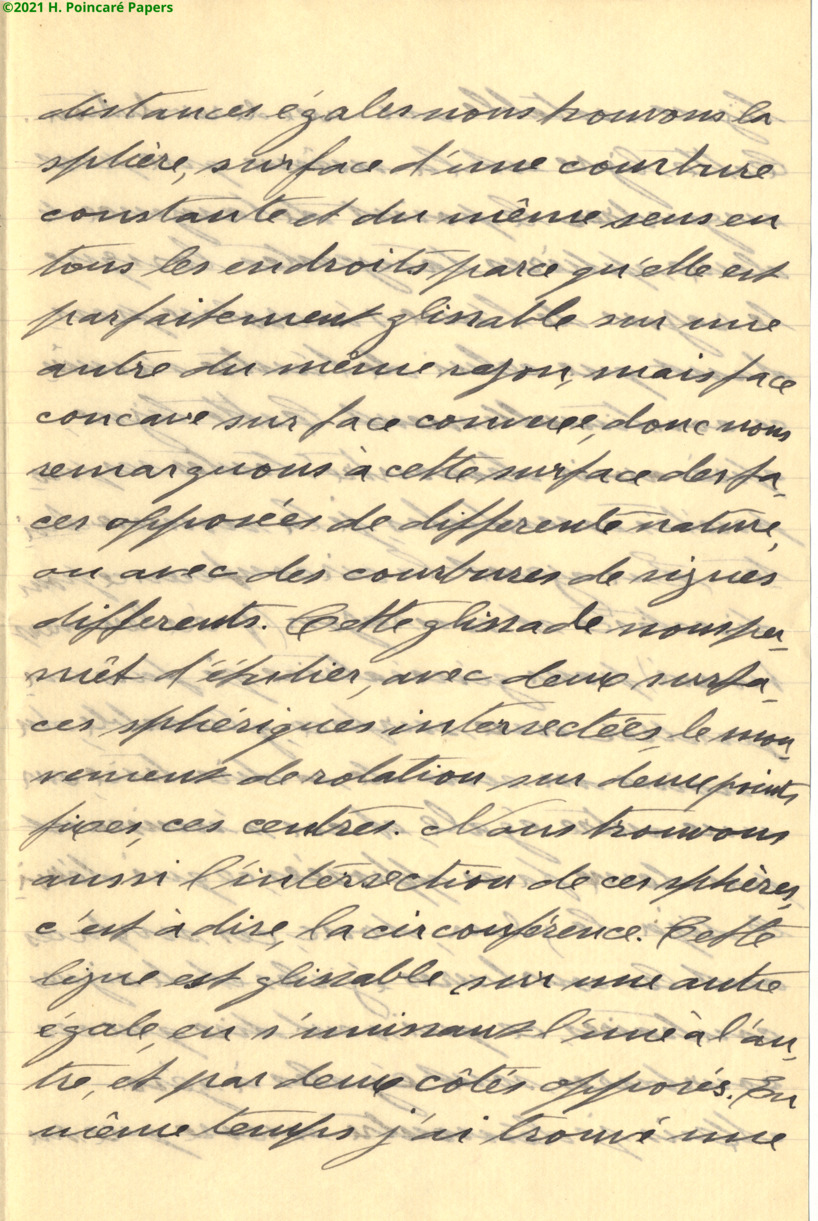 ©2021 H. Poincaré Papers
distances égales nous trouvons la
sphère, surface d'une courbure
constante et du même sens en
tous les endroits parce qu'elle est
parfaitement glissable sur une
autre du même rayon, mais face
concave sur face convexe, donc nous
remarquons à cette surface des fa-
ces opposées de differente nature,
ou avec des courbures de signes
differents. Cette glissade nous per-
mêt d'étudier, avec deux surfa-
ces sphériques intersectées, le mou-
vement de rotation sur deux points
fixes, ces centres. Nous trouvons
aussi l'intersection de ces sphères,
c'est à dire, la circonférence. Cette
ligne est glissable sur une autre
égale, en s'unissant l'une à l'au-
tre, et par deux côtés opposés. En
même temps j'ai trouvé une